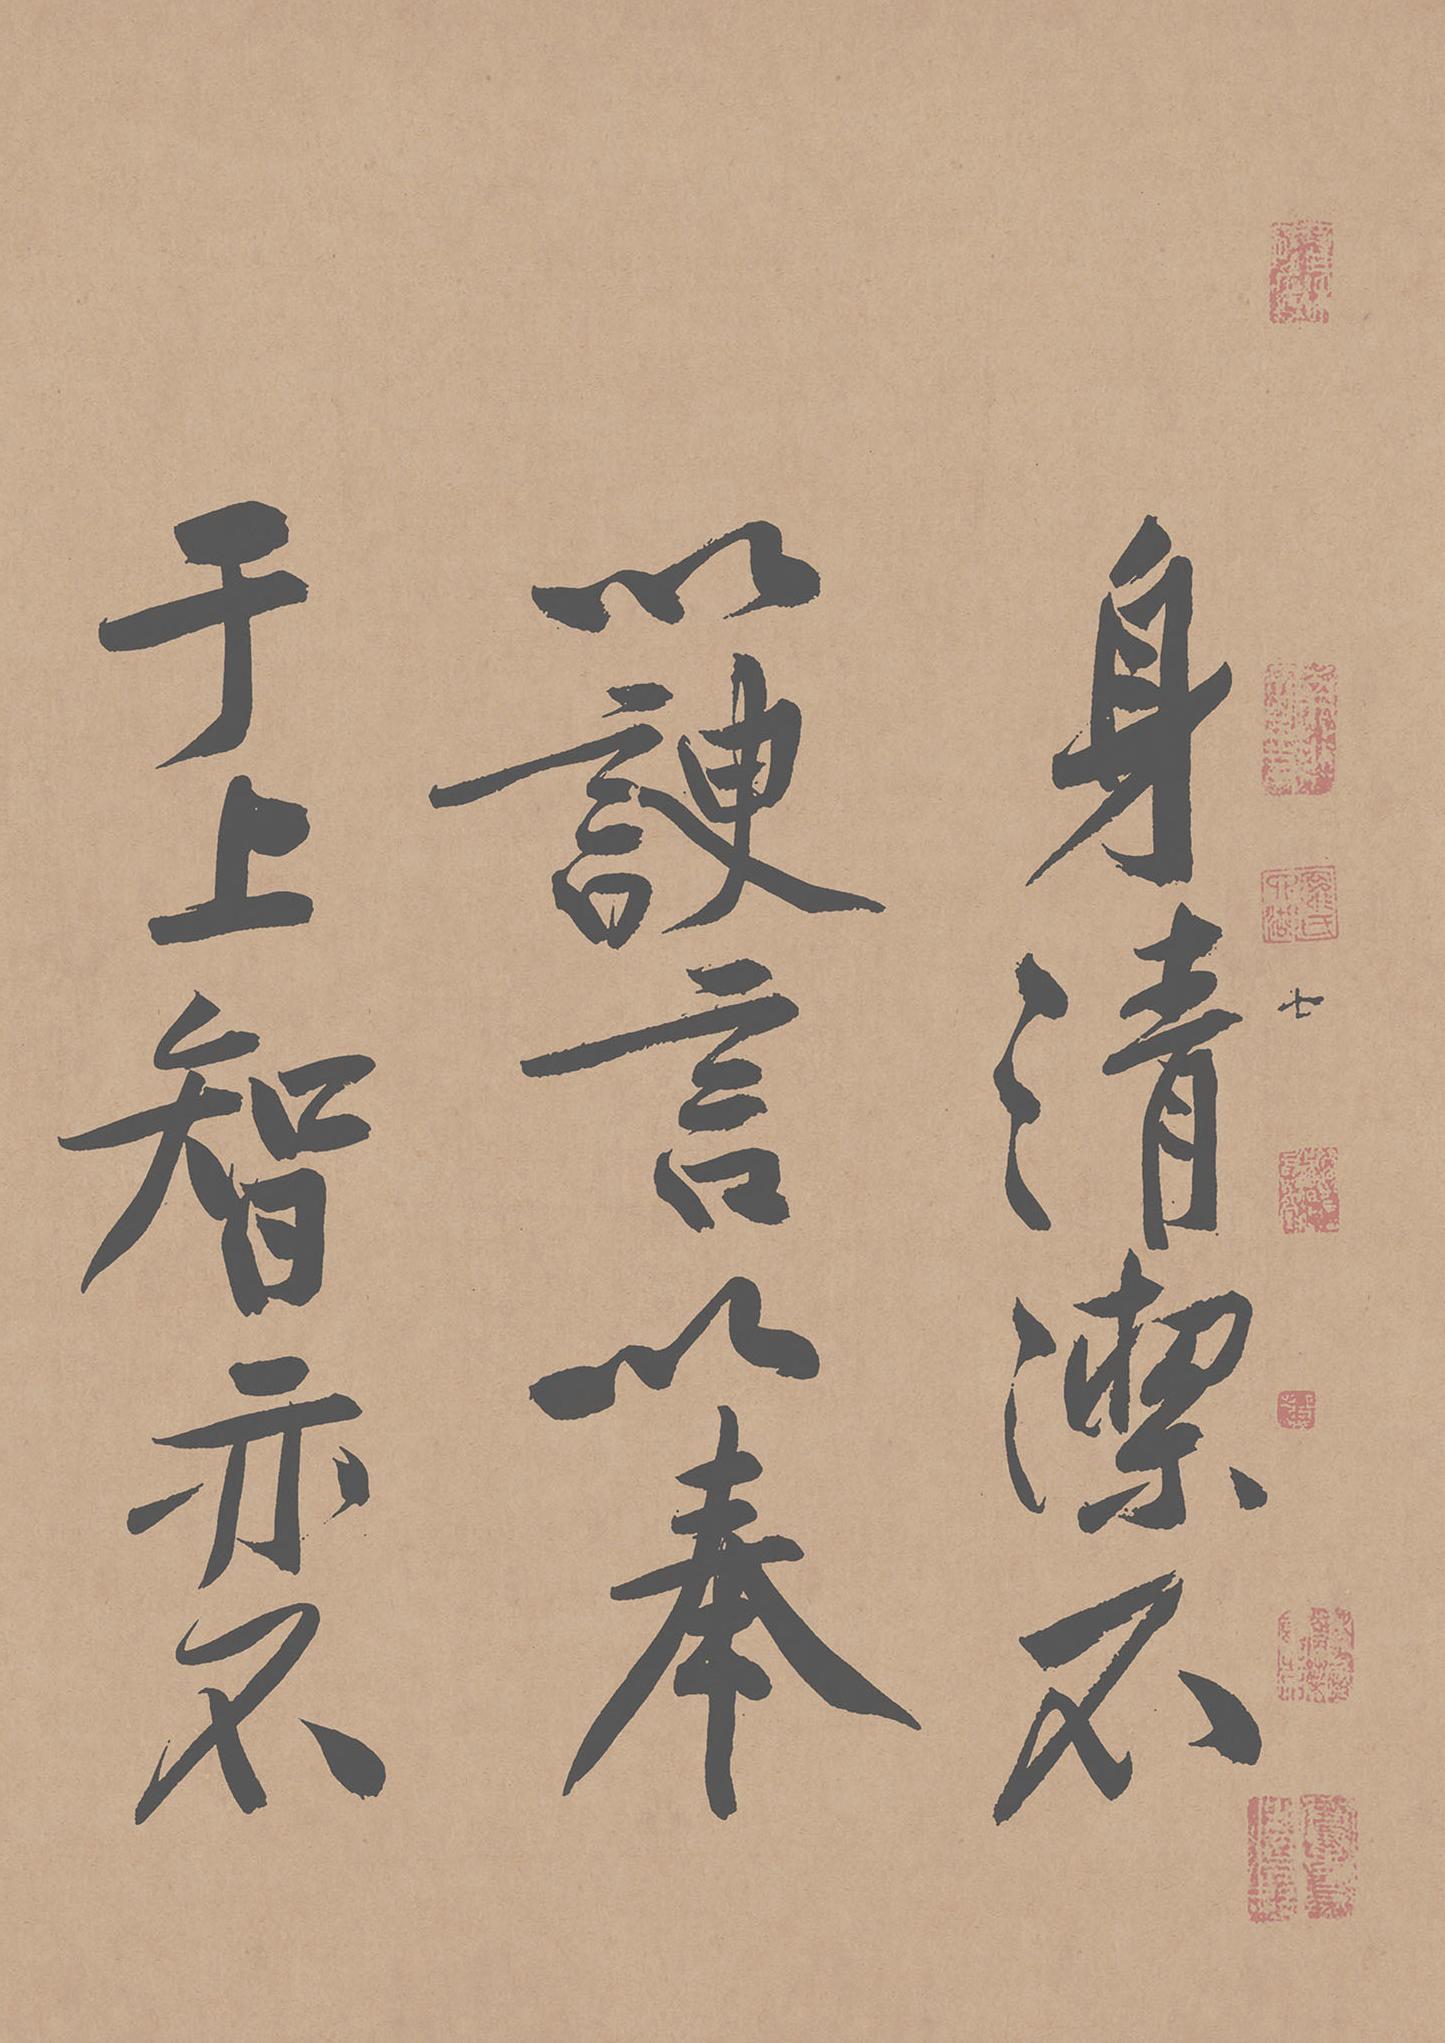 七
身清潔不
以諛言以奉
于上智亦不